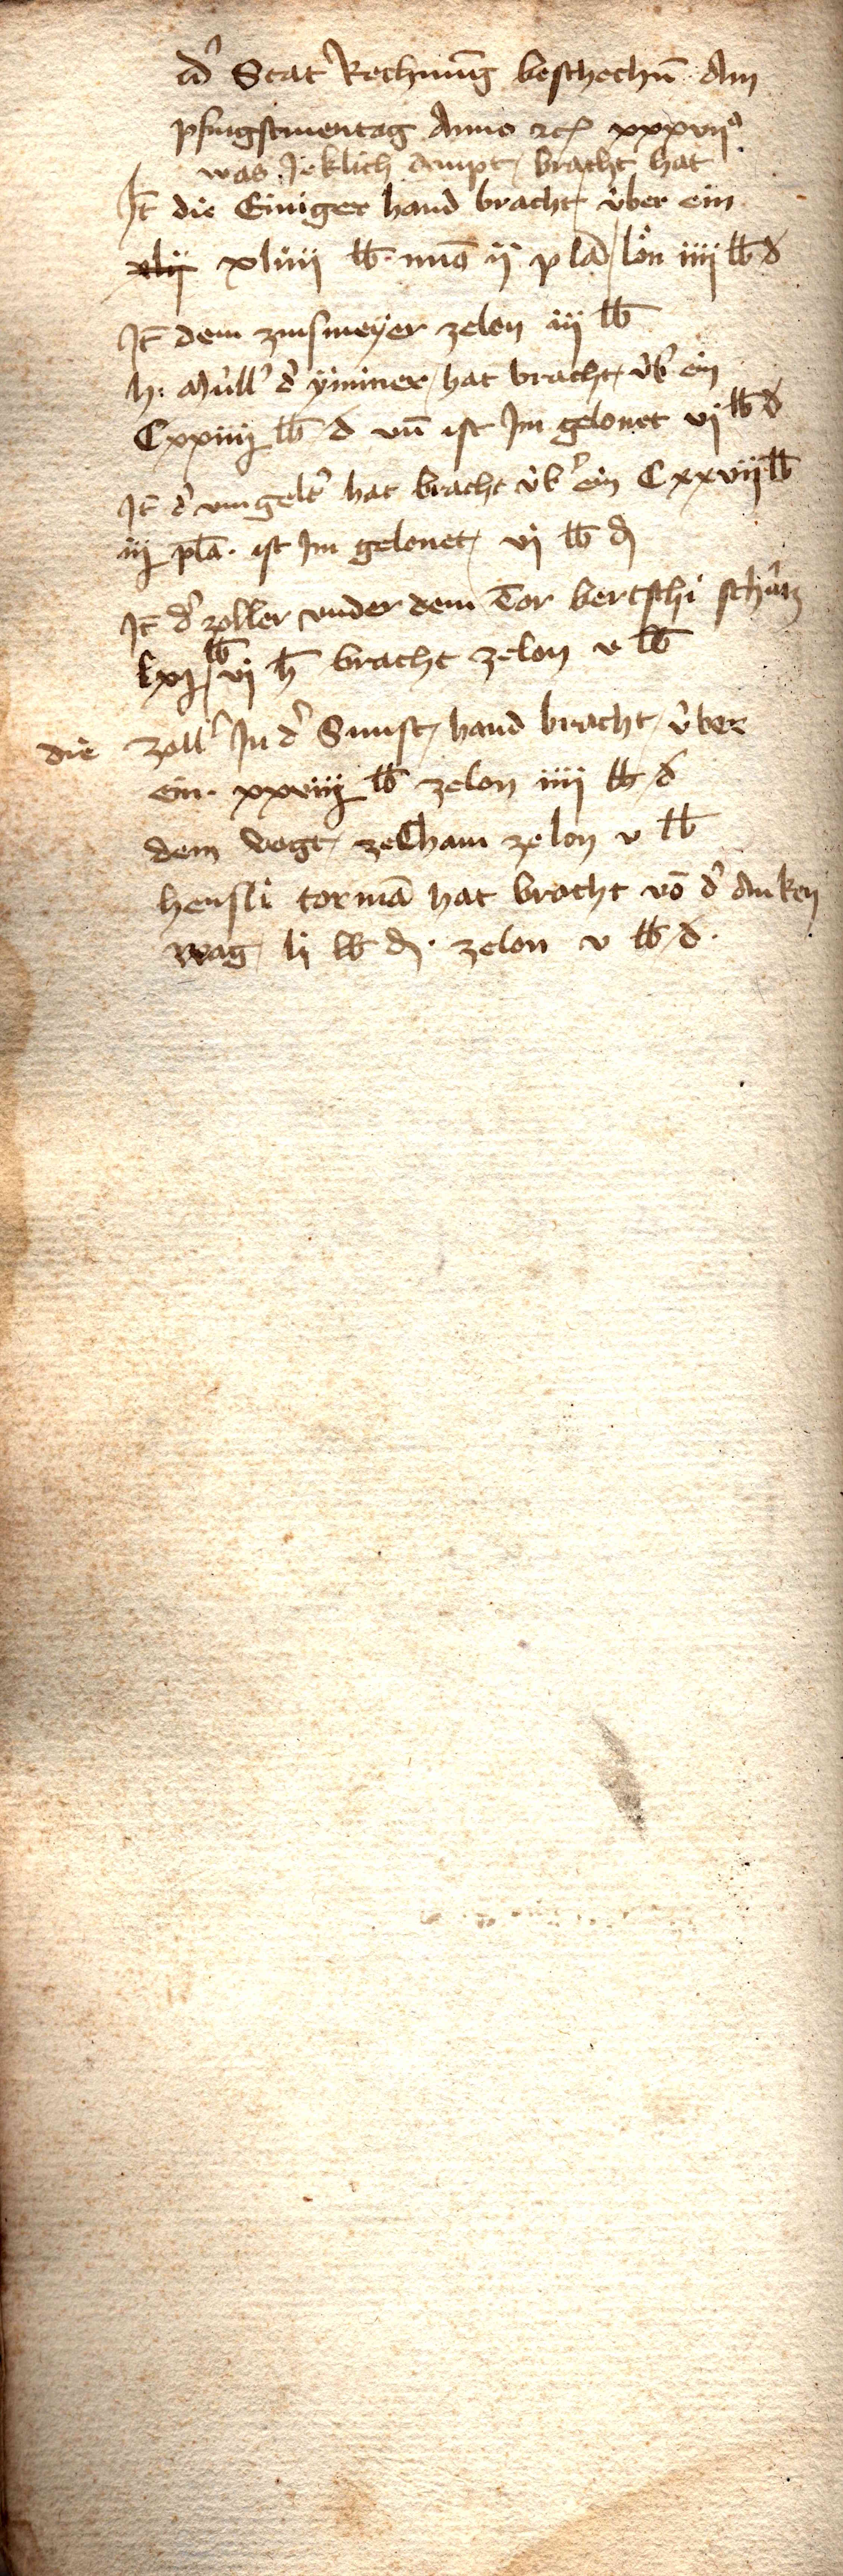 d' Stat Rechnūg beschechn̄ Am
pfingstmentag Anno ꝛc xxxvii°
was Jeklich ampt bracht hat
It̄ die Einiger hand bracht ůber ein
xlij xliiii lb. mī9 ij pla lön iiii lb d
It̄ dem zinsmeyer zelon iij lb
h. Můll' d' ÿminer hat bracht ůb' ein
Cxxiiij lb d vn̄ ist Jm gelonet vj lb d
It̄ d' vmgelt' hat bracht ůb' ein Cxxvij lb
iij pla. ist Jm gelonet vj lb d
It̄ d' zoller vnder dem Tor bertschi schůtz
lxj lb vj h̄ bracht zelon v lb
die zoll' Jn d' Sunst hand bracht ůber
ein. xxviiij lb zelon iiii lb d
dem vogt ze Cham zelon v lb
hensli tormā hat bracht vō d' Anken
wag lj lb d. zelon v lb d.